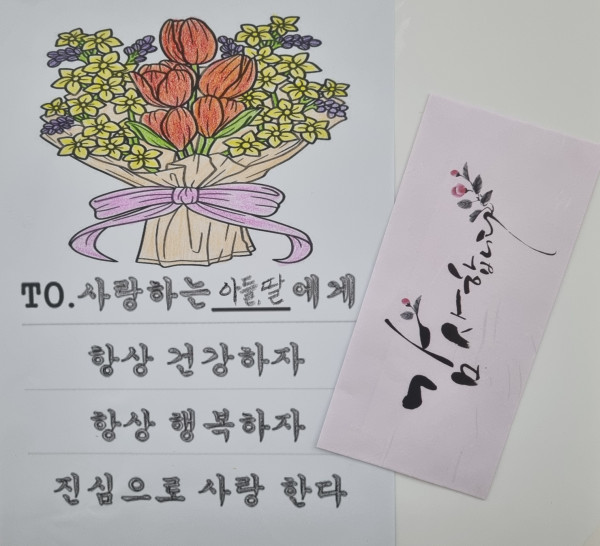 TO.사랑하는 아들,딸에게
항상 건강하자
항상 행복하자
진심으로 사랑 한다
감사합니다